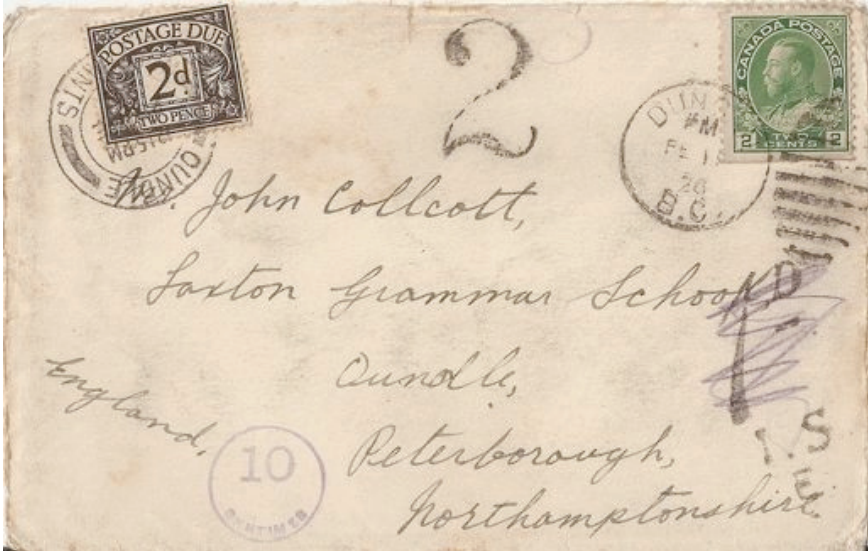 POSTAGE DUE
2d
TWO PENCE
OUNDLE
2
CANADA POSTAGE
2 TWO CENTS 2
PM
FE 11
26
B.C.
Mr. John Collcott,
Laxton Grammar School,
Oundle,
Peterborough,
Northamptonshire
England,
10
CENTIMES
1 D